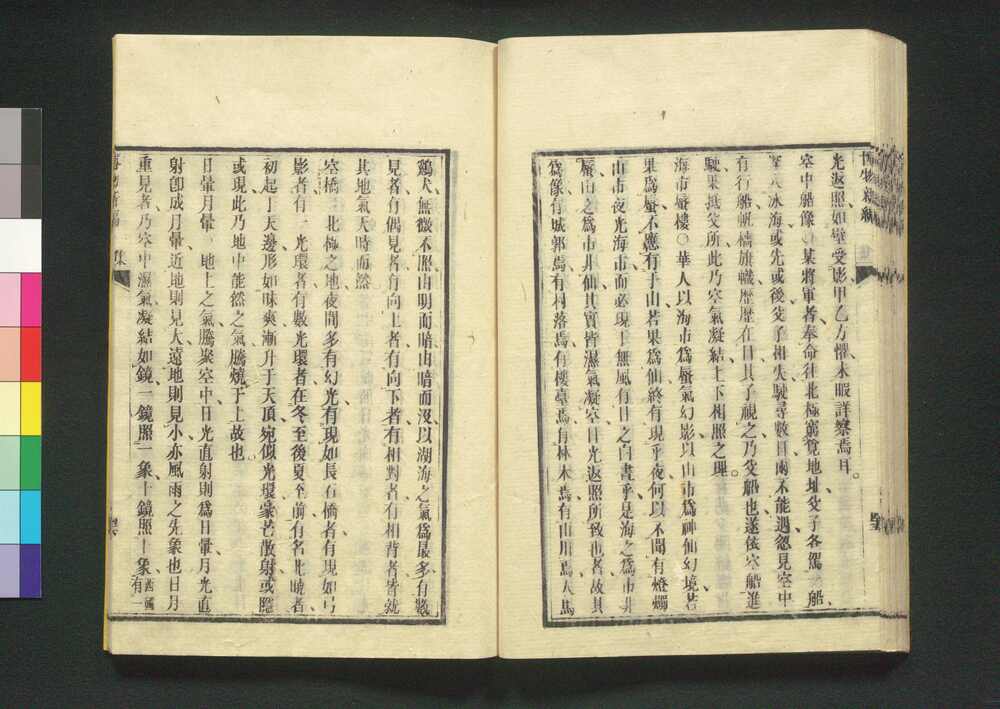 博物新編
光返照如壁受影甲乙方懼未暇詳察焉耳
空中船像〇某將軍者奉命往北極窮覓地址父子各駕一船
至大冰海或先或後父子相失駛尋數日兩不能遇忽見空中
有行船帆檣旗幟歷歷在目其子視之乃父船也遂依空船進
駛果抵父所此乃空氣凝結上下相照之理
海市蜃樓〇華人以海市爲蜃氣幻影以山市爲神仙幻境若
果爲蜃不應有于山若果爲仙終有現乎夜何以不聞有燈燭
山市夜光海市而必現于無風有日之白晝乎是海之爲市非
蜃山之爲市非仙其實皆濕氣凝空日光返照所致也者故其
爲像有城郭焉有村落焉有樓臺焉有林木焉有山川焉人馬
鷄犬無微不照由明而暗由暗而沒以湖海之氣爲最多有數
見者有偶見者有向上者有向下者有相對者有相背者皆就
其地氣天時而然
空橋 北極之地夜間多有幻光有現如長石橋者有現如弓
影者有一光環者有數光環者在冬至後夏至前有名北曉者
初起于天邊形如昧爽漸升于天頂宛似光環豪芒散射或隱
或現此乃地中能然之氣騰燒于上故也
日暈月暈 地上之氣騰聚空中日光直射則爲日暈月光直
射卽成月暈近地則見大遠地則見小亦風雨之先象也日月
重見者乃空中濕氣凝結如鏡一鏡照一象十鏡照十象西國有一
博物新編 集